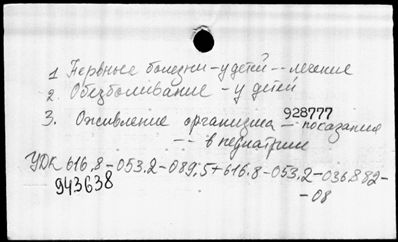 1 Нервные болезни - у детей -- лечение
2. Обезболивание - у детей
928777
3. Оживление организма - показания
-- в педиатрии
УДК 616.8-053.2-089.5+616.8-053.2-036.882-
-08
943638